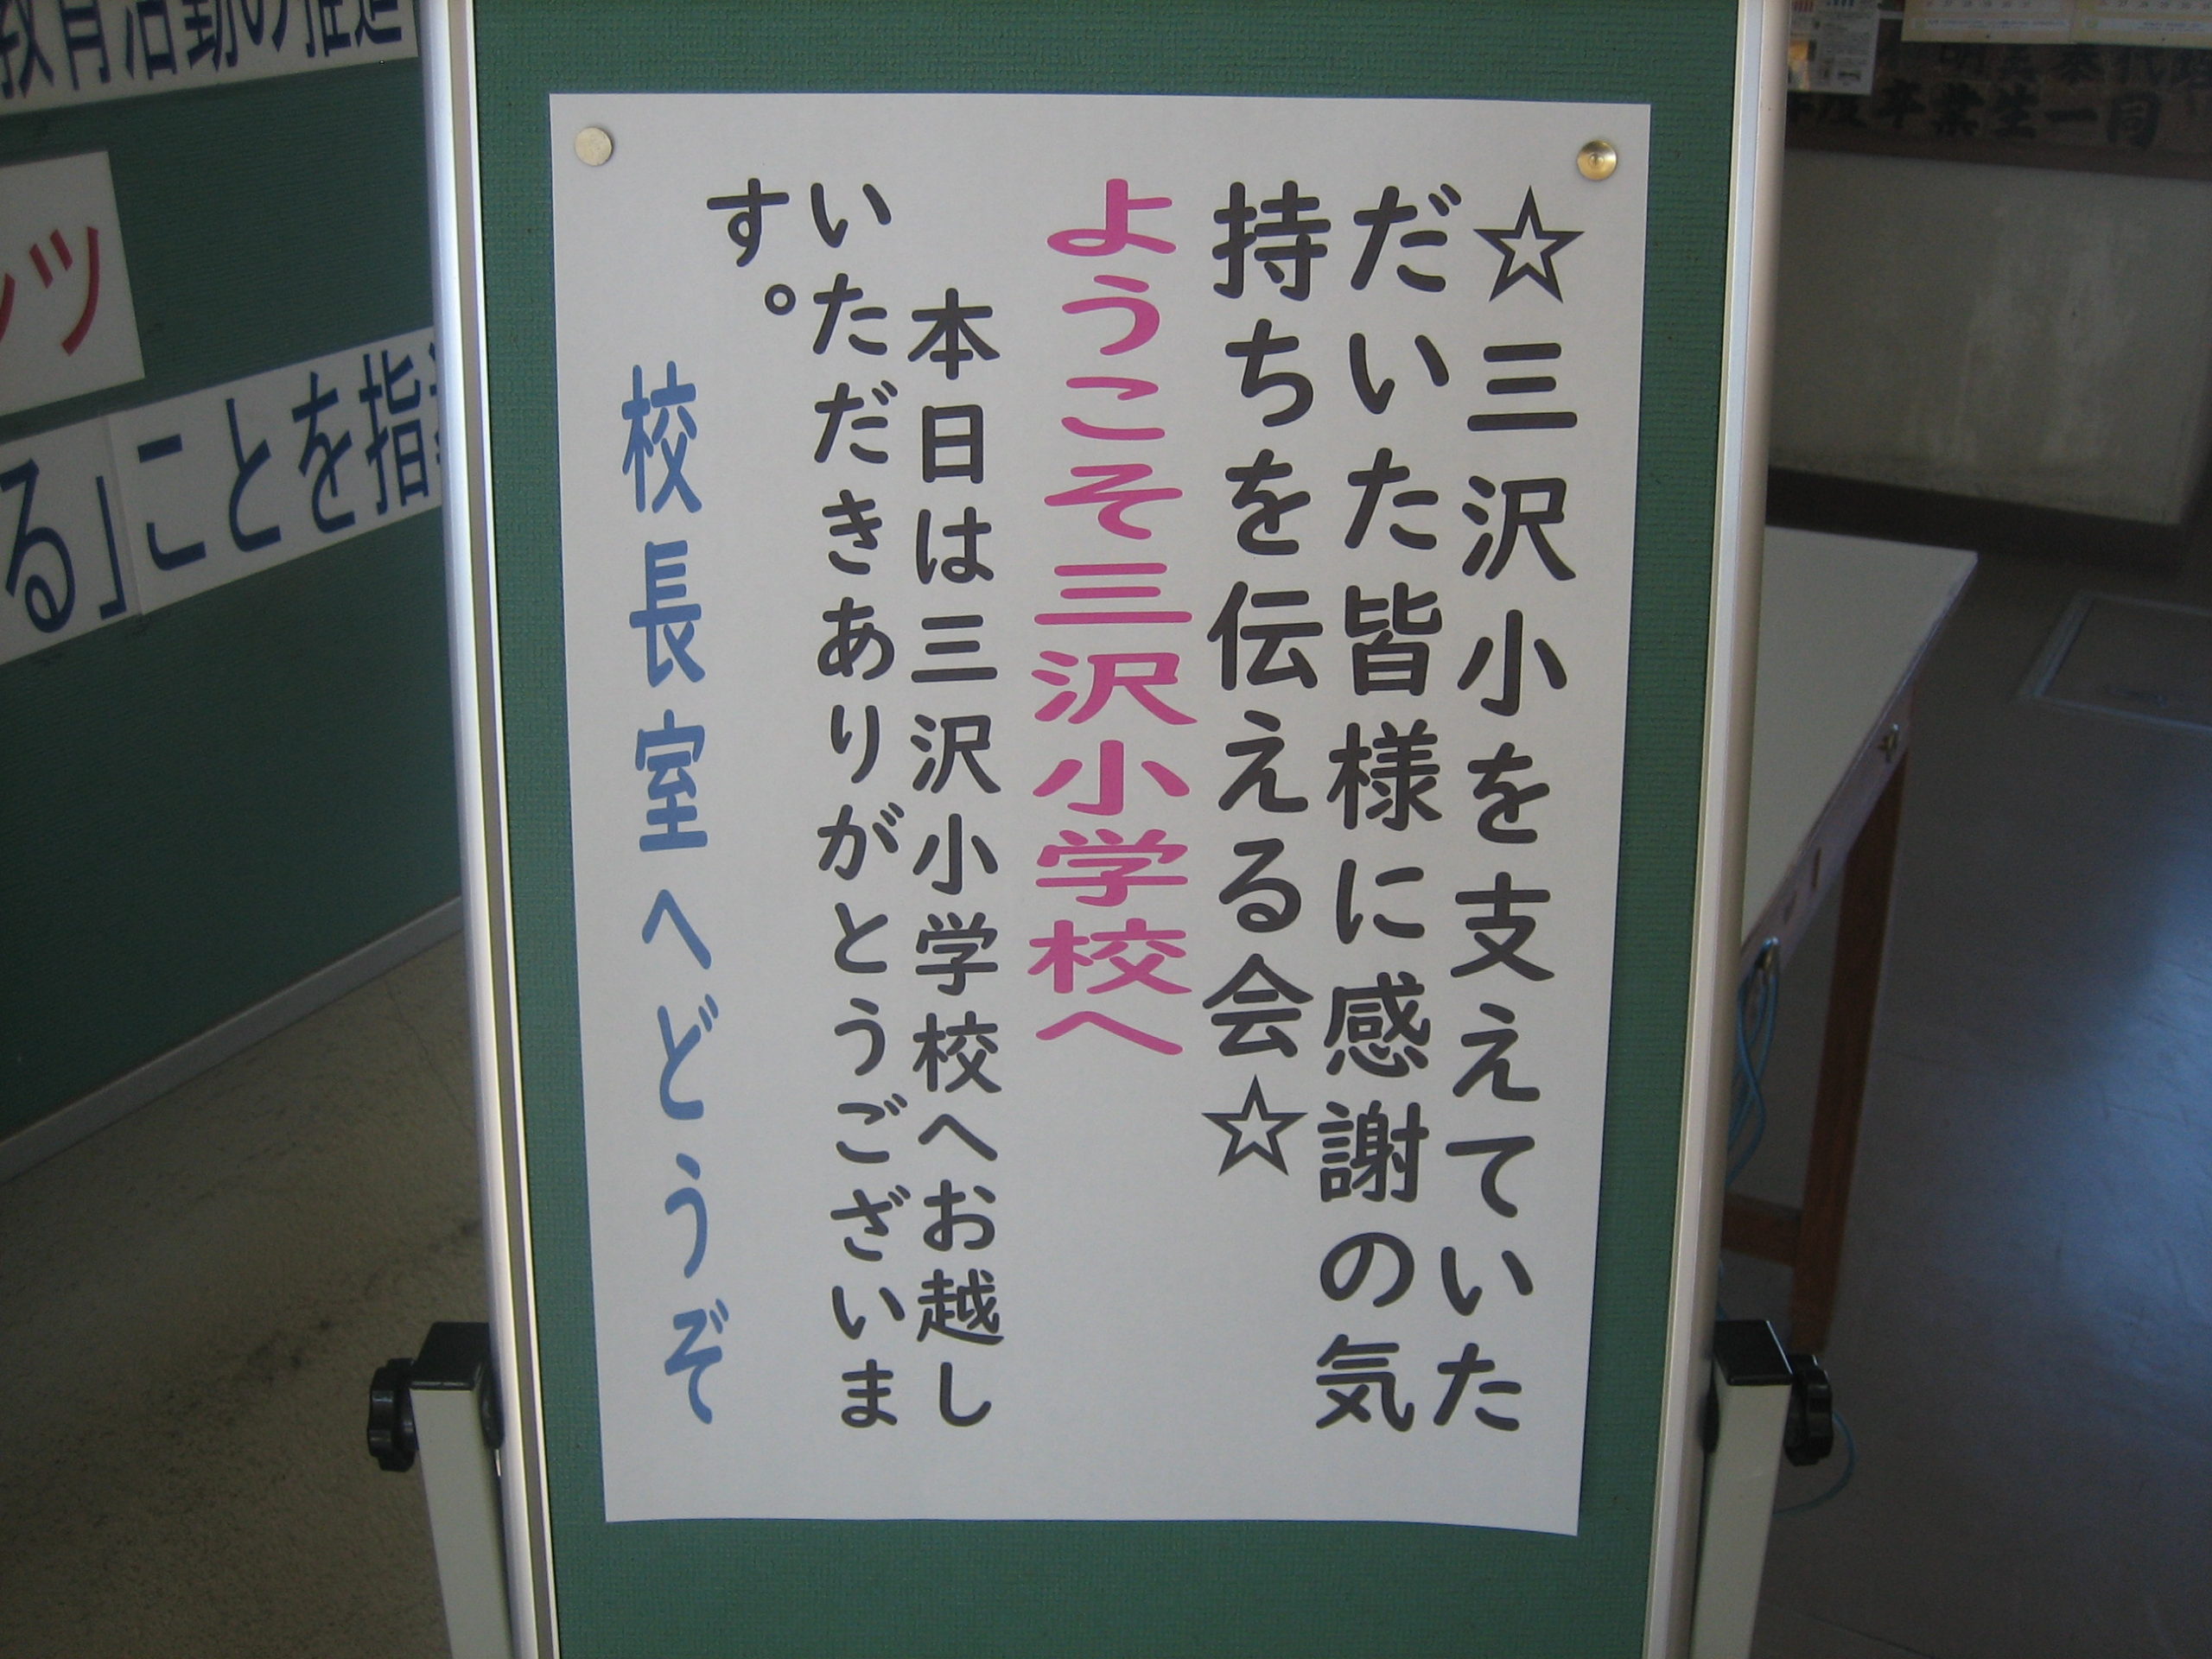 ☆三沢小を支えていた
だいた皆様に感謝の気
持ちを伝える会☆
ようこそ三沢小学校へ
本日は三沢小学校へお越し
いただきありがとうございま
す。
校長室へどうぞ
教育活動の推進
ツ
る」ことを指
卒業生一同